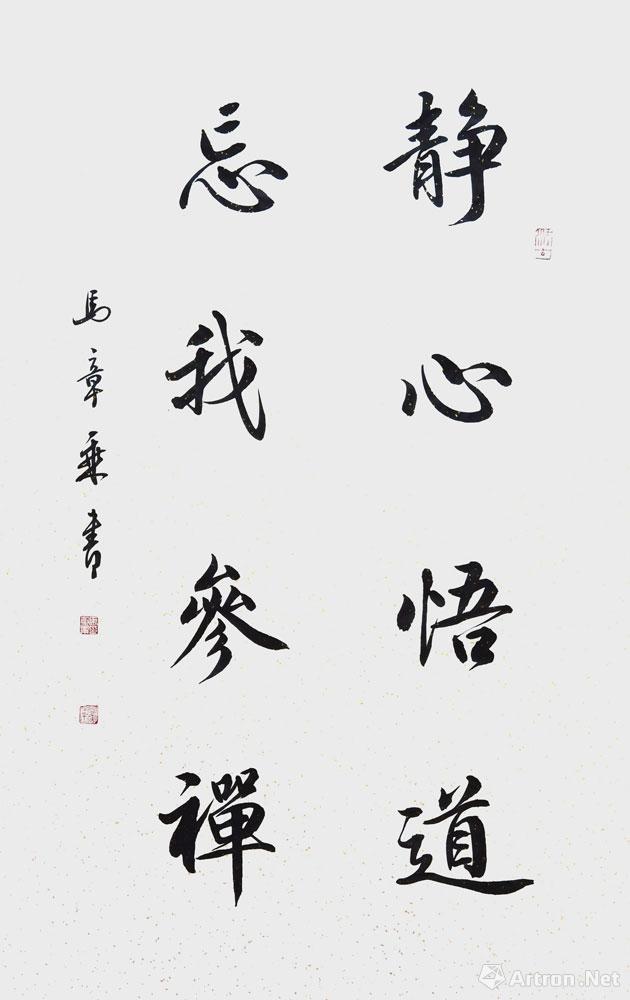 静心悟道
忘我參禪
馬章乘書
Artron.Net